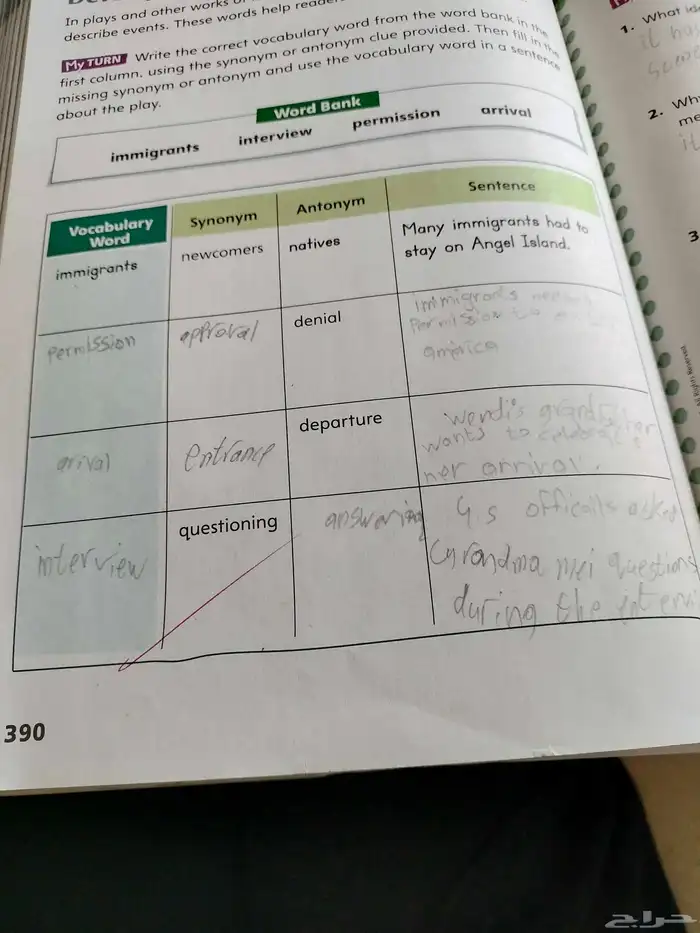 In plays and other works of
describe events. These words help reade
My TURN Write the correct vocabulary word from the word bank in the
first column, using the synonym or antonym clue provided. Then fill in the
missing synonym or antonym and use the vocabulary word in a sentence
about the play.
Word Bank
immigrants interview permission arrival
Vocabulary Word Synonym Antonym Sentence
immigrants newcomers natives Many immigrants had to
stay on Angel Island.
permission approval denial immigrants
permission to
america
arival entrance departure wendi's
wants to
her arrival.
interview questioning answering u.s officails asked
Grandma mei questions
during the intervi
390
1. What
it has
2. Wh
me
it
3
All Rights Reserved.
حراج